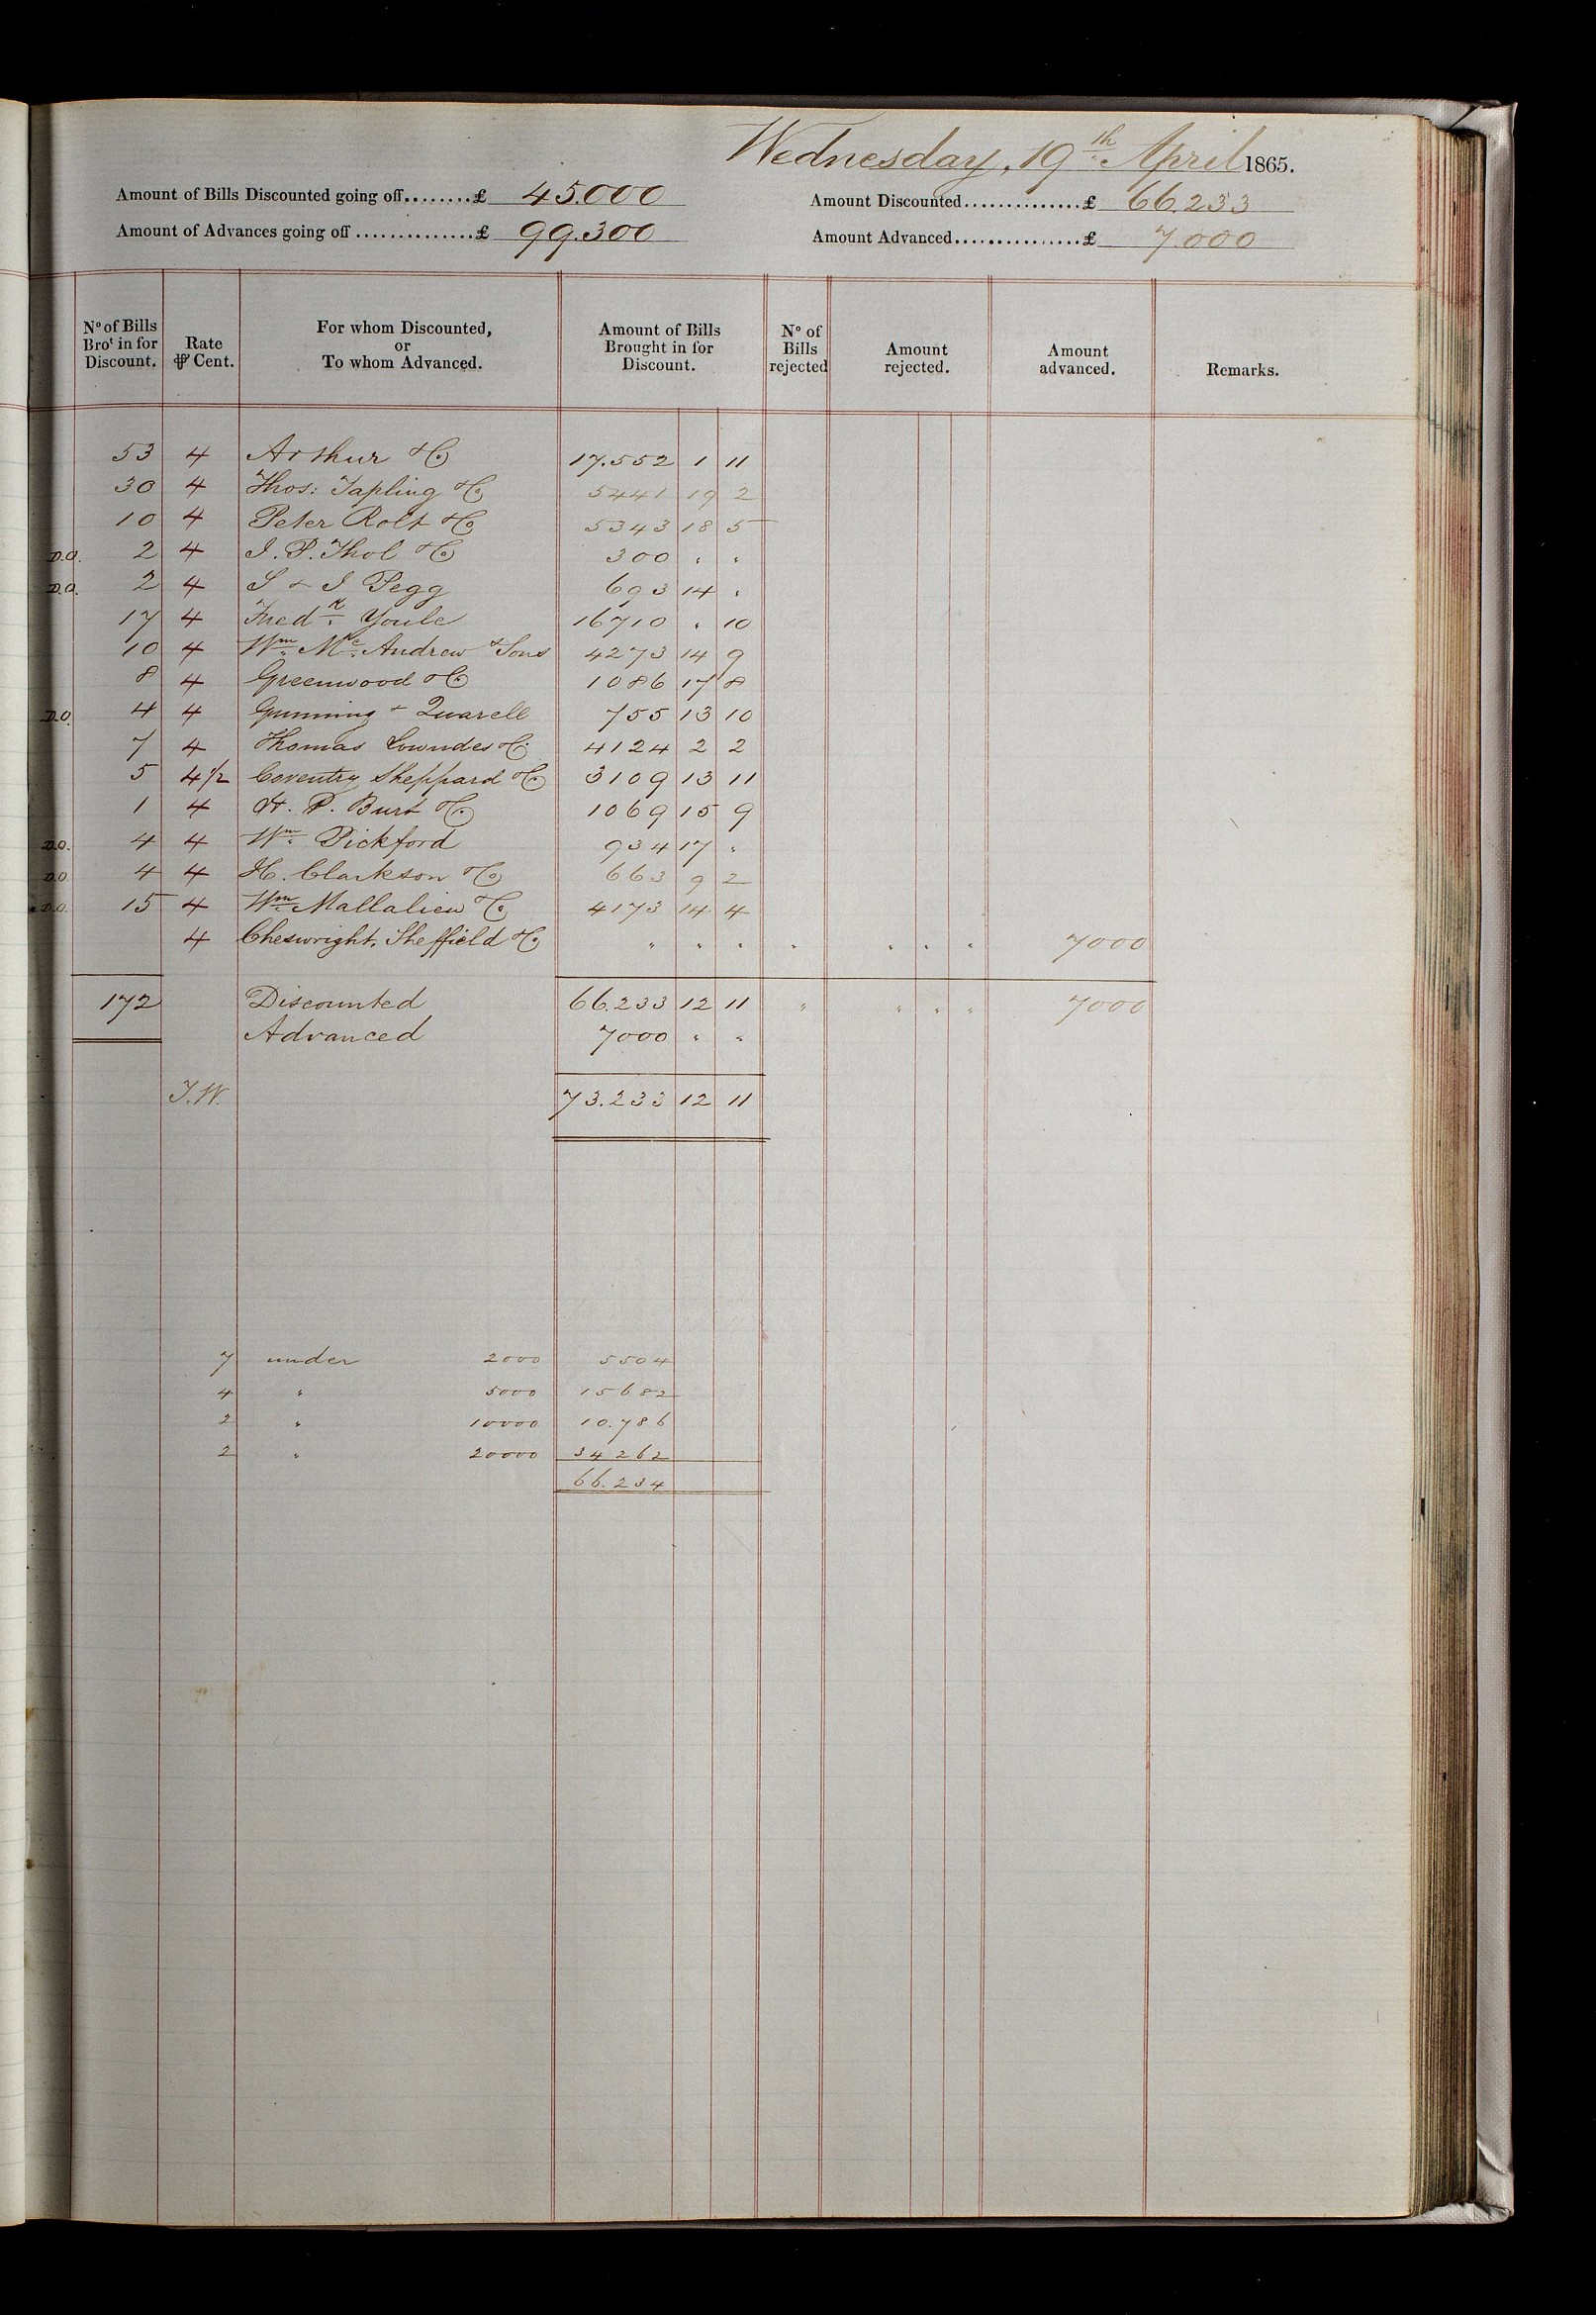 Wednesday, 19th April 1865.
Amount of Bills Discounted going off........£ 45.000 Amount Discounted..............£ 66.233
Amount of Advances going off ..............£ 99.300 Amount Advanced...............£ 7.000
No of Bills Brot in for Discount. Rate ⅌ Cent. For whom Discounted, or To whom Advanced. Amount of Bills Brought in for Discount. No of Bills rejected Amount rejected. Amount advanced. Remarks.
53 4 Arthur & Co 17.552 1 11
30 4 Thos: Tapling & Co 5441 19 2
10 4 Peter Rolt & Co 5343 18 5
D.O. 2 4 I. P. Thol & Co 300 " "
D.O. 2 4 S & I Pegg 693 14 "
17 4 Fredk Youle 16710 " 10
10 4 Wm Mc Andrew & Sons 4273 14 9
8 4 Greenwood & Co 1086 17 8
D.O. 4 4 Gunning & Quarell 755 13 10
7 4 Thomas Lowndes & Co 4124 2 2
5 4½ Coventry Sheppard & Co 3109 13 11
1 4 H. P. Burt & Co 1069 15 9
D.O. 4 4 Wm Pickford 934 17 "
D.O. 4 4 H. Clarkson & Co 663 9 2
D.O. 15 4 Wm Mallalieu & Co 4173 14 4
4 Cheswright, Sheffield & Co " " " " " " " 7000
172 Discounted 66.233 12 11 " " " " 7000
Advanced 7000 " "
J.W. 73.233 12 11
7 under 2000 5504
4 " 5000 15682
2 " 10000 10.786
2 " 20000 34262
66.234